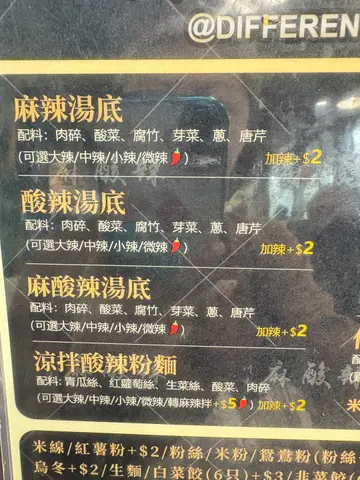 @DIFFEREN
麻辣湯底
配料：肉碎、酸菜、腐竹、芽菜、蔥、唐芹
(可選大辣/中辣/小辣/微辣🌶) 加辣+$2
酸辣湯底
配料：肉碎、酸菜、腐竹、芽菜、蔥、唐芹
(可選大辣/中辣/小辣/微辣🌶) 加辣+$2
麻酸辣湯底
配料：肉碎、酸菜、腐竹、芽菜、蔥、唐芹
(可選大辣/中辣/小辣/微辣🌶) 加辣+$2
涼拌酸辣粉麵
配料: 青瓜絲、紅蘿蔔絲、生菜絲、酸菜、肉碎
(可選大辣/中辣/小辣/微辣/轉麻辣拌+$5🌶) 加辣+$2
米線/紅薯粉+$2/粉絲/米粉/鴛鴦粉(粉絲
烏冬+$2/生麵/白菜餃(6只)+$3/韭菜餃(